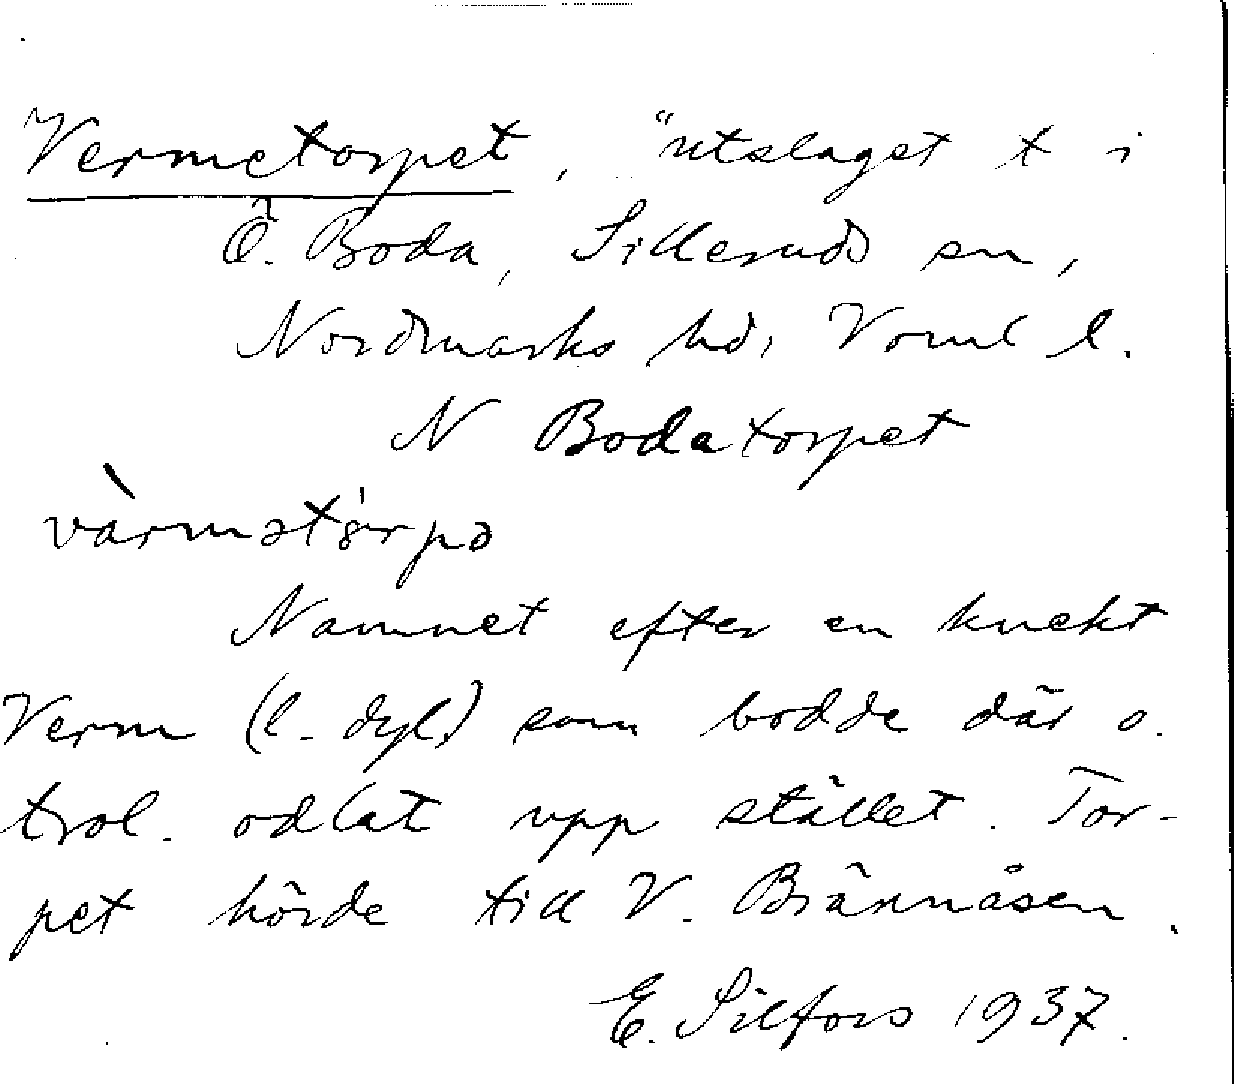 Vermetorpet, "utslaget t i
Ö. Boda, Silleruds sn,
Nordmarks hd, Vrml l.
N Bodatorpet
vàrmətö́rpə
Namnet efter en knekt
Verm (l. dyl.) som bodde där o.
trol. odlat upp stället. Tor-
pet hörde till V. Brännåsen.
E. Silfors 1937.